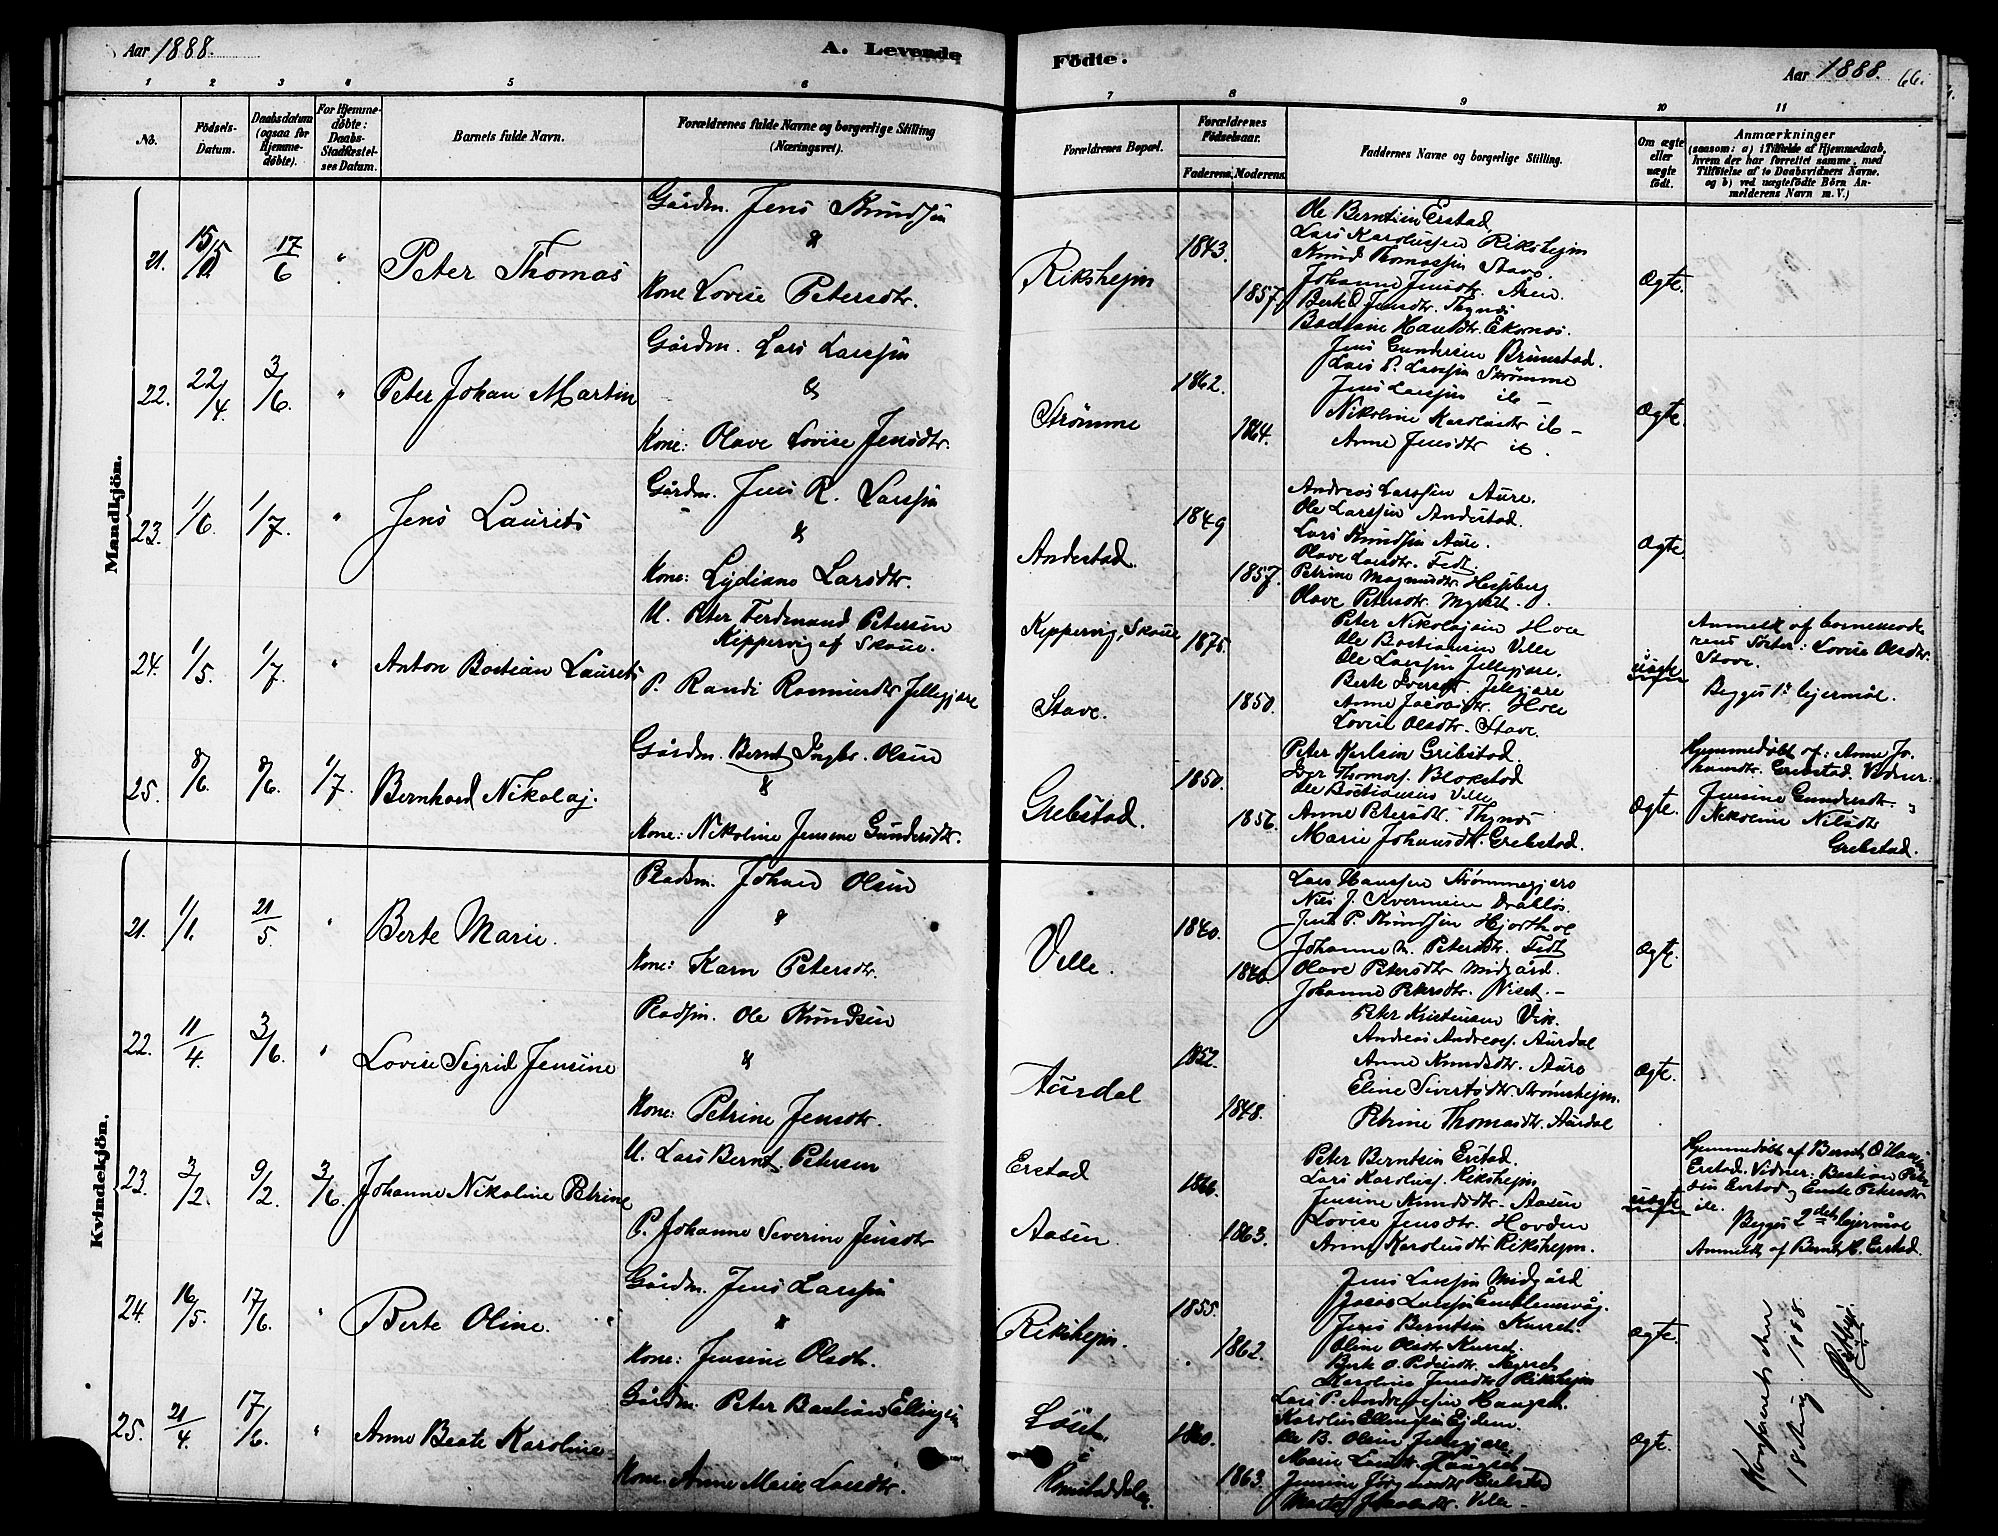 Aar 1888.
A. Levende
Födte.
Aar 1888. 66.
1 2 3 4 5 6
7 8 9 10 11
No.
Födsels-Datum.
Daabsdatum (ogsaa for Hjemme-døbte).
For Hjemme-døbte: Daabs-Stadfæstel-ses Datum.
Barnets fulde Navn.
Forældrenes fulde Navne og borgerlige Stilling (Næringsvei).
Forældrenes Bopæl.
Forældrenes Födselsaar.
Faderens. Moderens.
Faddernes Navne og borgerlige Stilling.
Om ægte eller uægte födt.
Anmærkninger
(saasom: a) i Tilfælde af Hjemmedaab, hvem der har forrettet samme, med Tilføielse af to Daabsvidners Navne, og b) ved uægtefødte Börn An-melderens Navn m.V.)
Mandkjön.
21. 15/5 17/6 " Peter Thomas
Gårdm. Jens Knudsen
&
Kone Lovise Petersdtr.
Rikshejm 1843. 1857.
Ole Berntsen Erstad
Lars Karolussen Rikshejm
Knud Thomassen Stave
Johanne Jensdtr. Aasen
Berte Jensdtr. Thynes
Bastiane Hansdtr. Ekornes.
Ægte.
22. 22/4 3/6. " Peter Johan Martin
Gårdm. Lars Larssen
&
Kone: Olave Lovise Jensdtr.
Strømme 1862. 1864.
Jens Gundersen Brunstad.
Lars P. Larssen Strømme
Jens Larssen ib –
Nikoline Karolusdtr ib –
Anne Jensdtr ib.
Ægte.
23. 1/6. 1/7. " Jens Laurits
Gårdm. Jens R. Larssen
&
Kone: Lydiane Larsdtr.
Andestad. 1849 1857.
Andreas Larssen Aure.
Ole Larssen Andestad.
Lars Knudsen Aure.
Olave Larsdtr. Fedt.
Petrine Magnusdtr Hessberg
Olave Petersdtr. Myrset.
Ægte.
24. 1/5. 1/7. " Anton Bastian Laurits
U. Peter Ferdinand Petersen
Kippervig af Skoue.
P. Randi Rasmusdtr Jellegjære
Kippervig, Skoue 1875.
Stave. 1850.
Peter Nikolajsen Hole
Ole Bastiansen Velle
Ole Larssen Jellegjære.
Berte Iversdt. Jelegjære
Anne Jacobsdtr. Hole
Lovise Olsdtr. Stave.
uægte
Anmeldt af barnemode-
rens Søster: Lovise Olsdtr.
Stave.
Begges 1ste lejermål.
25. 8/6. 8/6. 1/7. Bernhard Nikolaj.
Gårdm. Bernt Ingbr. Olsen
&
Kone: Nikoline Jensine Gundersdtr.
Grebstad. 1850. 1856.
Peter Karlsen Grebstad.
Iver Thomass. Blakstad
Ole Bastiansen Velle
Anne Petersdtr Thynes
Marie Johansdtr. Grebstad.
Ægte.
Hjemmedøbt af: Anne Jo-
hansdtr. Grebstad. Vidner:
Jensine Gundersdtr. &
Nikoline Nilsdtr
Grebstad.
Kvindekjön.
21. 1/1. 21/5. " Berte Marie.
Pladsm. Johan Olsen
&
Kone: Karn Petersdtr.
Velle. 1840. 1846
Lars Hanssen Strømmegjære
Nils J. Svermsen Drabløs.
Jens P. Knudsen Hjorthol
Johanne N. Petersdtr. Fedt
Olave Petersdtr Midgård.
Johanne Petersdtr. Riset. –
Ægte.
22. 11/4 3/6. " Lovise Sigrid Jensine
Pladsm. Ole Knudsen
&
Kone: Petrine Jensdtr.
Aurdal 1852. 1848.
Peter Kristensen Vik.
Andreas Andreass. Aurdal
Anne Knudsdtr. Aure
Eline Sivertsdtr. Strømshejm.
Petrine Thomasdtr. Aurdal
Ægte.
23. 3/2. 9/2. 3/6. Johanne Nikoline Petrine
U. Lars Bernt Petersen
P. Johanne Severine Jensdtr
Erstad 1866.
Aasen 1863.
Peter Berntsen Erstad.
Lars Karoluss. Rikshejm
Jensine Knudsdtr. Aasen
Lovise Jensdtr. Hovden
Anne Karolusdtr Rikshejm.
uægte
Hjemmedøbt af Bernt O. Hansen
Erstad. Vidner: Bastian Peter-
sen Erstad & Emte Petersdtr
ib.
Begges 2det lejermål
Anmeldt af Bernt H. Erstad.
24. 16/5. 17/6. " Berte Oline.
Gårdm. Jens Larssen
&
Kone: Jensine Olsdtr.
Rikshejm. 1855. 1862.
Jens Larssen Midgård
Jacob Larssen Emblemsvåg.
Jens Berntsen Kurset.
Oline Olsdtr Kurset.
Berte O. Pedersdtr. Myrset
Karoline Jensdtr Rikshejm
Ægte.
25. 21/4. 17/6. " Anne Beate Karoline
Gårdm. Peter Bastian Ellingsen
Kone. Anne Marie Larsdtr.
Løset
i
1860. 1863.
Lars P. Andreassen Haugset.
Karolus Ellingsen Ejdem.
Ole B. Olsen Jellegjære
Marie Larsdtr. Haugset
Velle –
Ægte.
Konfereret den
18 Aug. 1888.